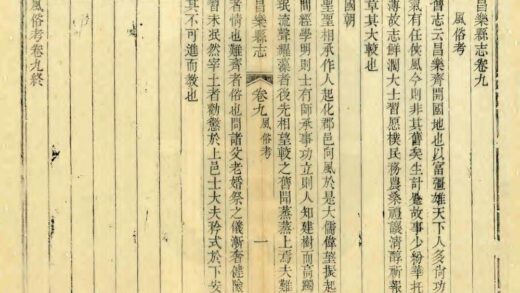 昌樂縣志卷九
風俗考
舊志云昌樂齊開國地也以富彊雄天下人多尚功
氣有任俠風今則非其舊矣生計故事少紛華
薄故志鮮濶大士習愿樸民務農桑讓淸醇祈報
草其大較也
國朝
聖聖相承作人起化郡邑向風於是大儒偉望振起
間經學明則士有師承事功立則人知建樹而高躅
昌樂縣志 卷九 風俗考 一
民流聲耀藻者後先相望較之舊聞蒸蒸上焉夫難
者情也難齊者俗也問諸父老婚祭之儀漸奢
習未泯然宰土者勸懲於上邑士大夫矜式於下安
其不可進而敎也
風俗考卷九終